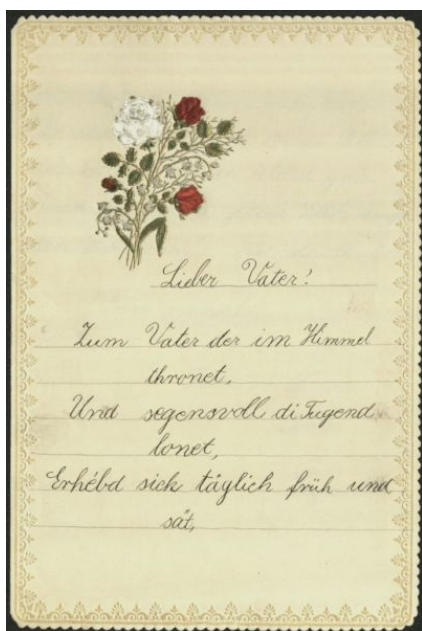 Lieber Vater!
Zum Vater der im Himmel
thronet,
Und segensvoll di Tugend
lonet,
Erhébd sich täylich früh und
sät,